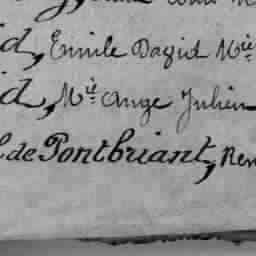 id, Emile David Mie
id, Mie Ange Julien
de Pontbriant, Ren